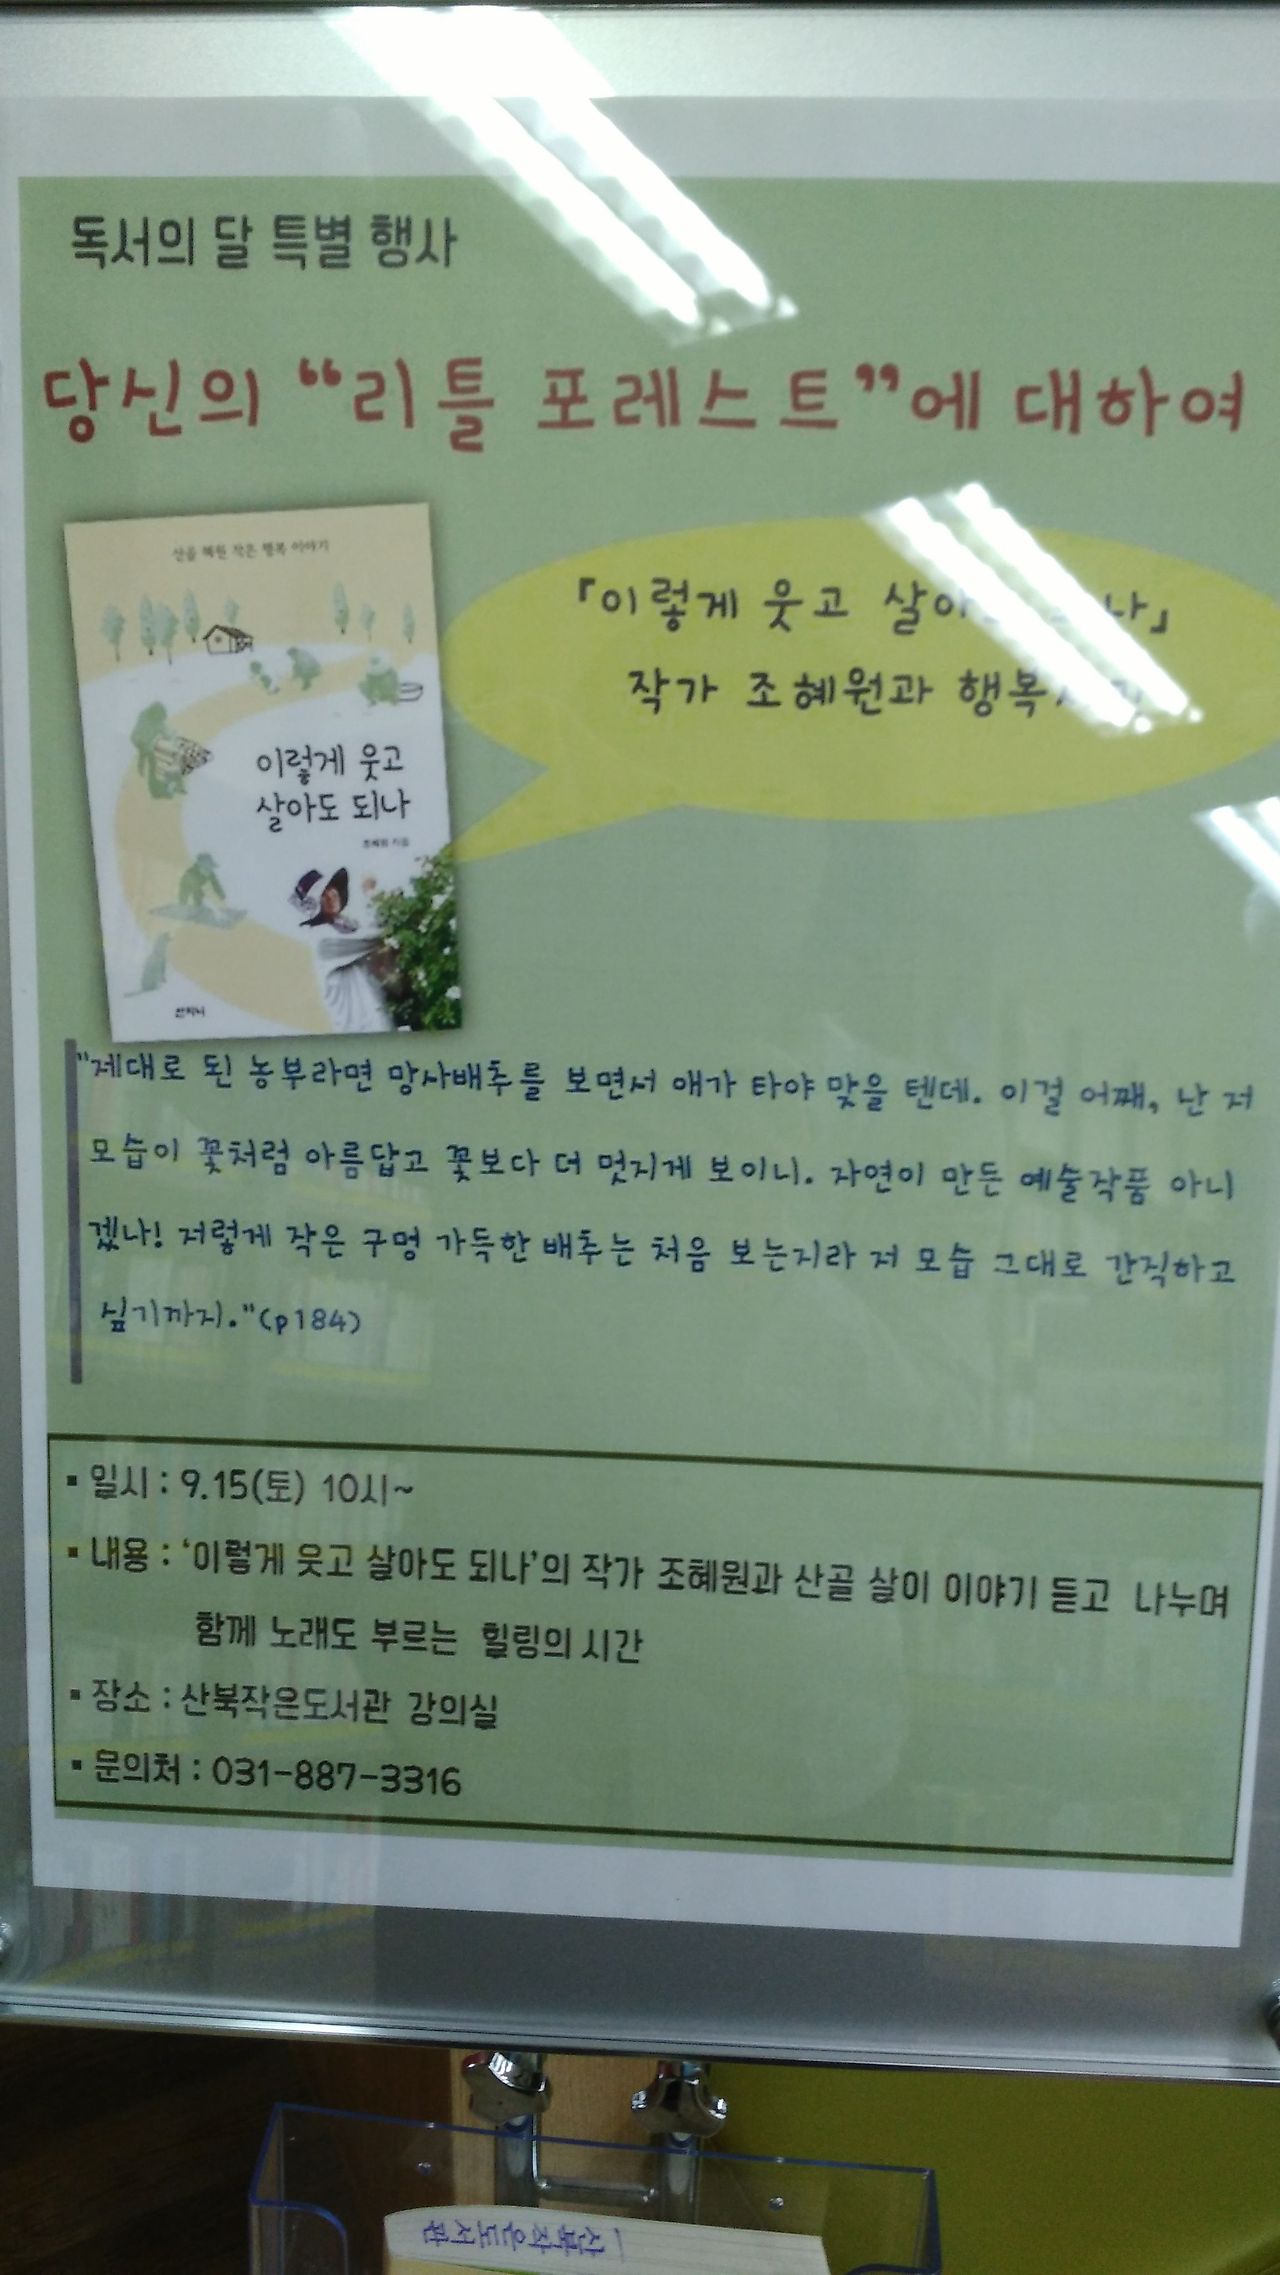 독서의 달 특별 행사
당신의 “리틀 포레스트”에 대하여
산골 혜원 작은 행복 이야기
이렇게 웃고
살아도 되나
조혜원 지음
산지니
『이렇게 웃고 나』
작가 조혜원과
"제대로 된 농부라면 망사배추를 보면서 애가 타야 맞을 텐데. 이걸 어째, 난 저
모습이 꽃처럼 아름답고 꽃보다 더 멋지게 보이니. 자연이 만든 예술작품 아니
겠나! 저렇게 작은 구멍 가득한 배추는 처음 보는지라 저 모습 그대로 간직하고
싶기까지."(p184)
▪ 일시 : 9.15(토) 10시~
▪ 내용 : ‘이렇게 웃고 살아도 되나’의 작가 조혜원과 산골 살이 이야기 듣고 나누며
함께 노래도 부르는 힐링의 시간
▪ 장소 : 산북작은도서관 강의실
▪ 문의처 : 031-887-3316
산북작은도서관